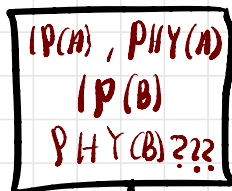 IP(A), PHY(A)
IP(B)
PHY(B)???